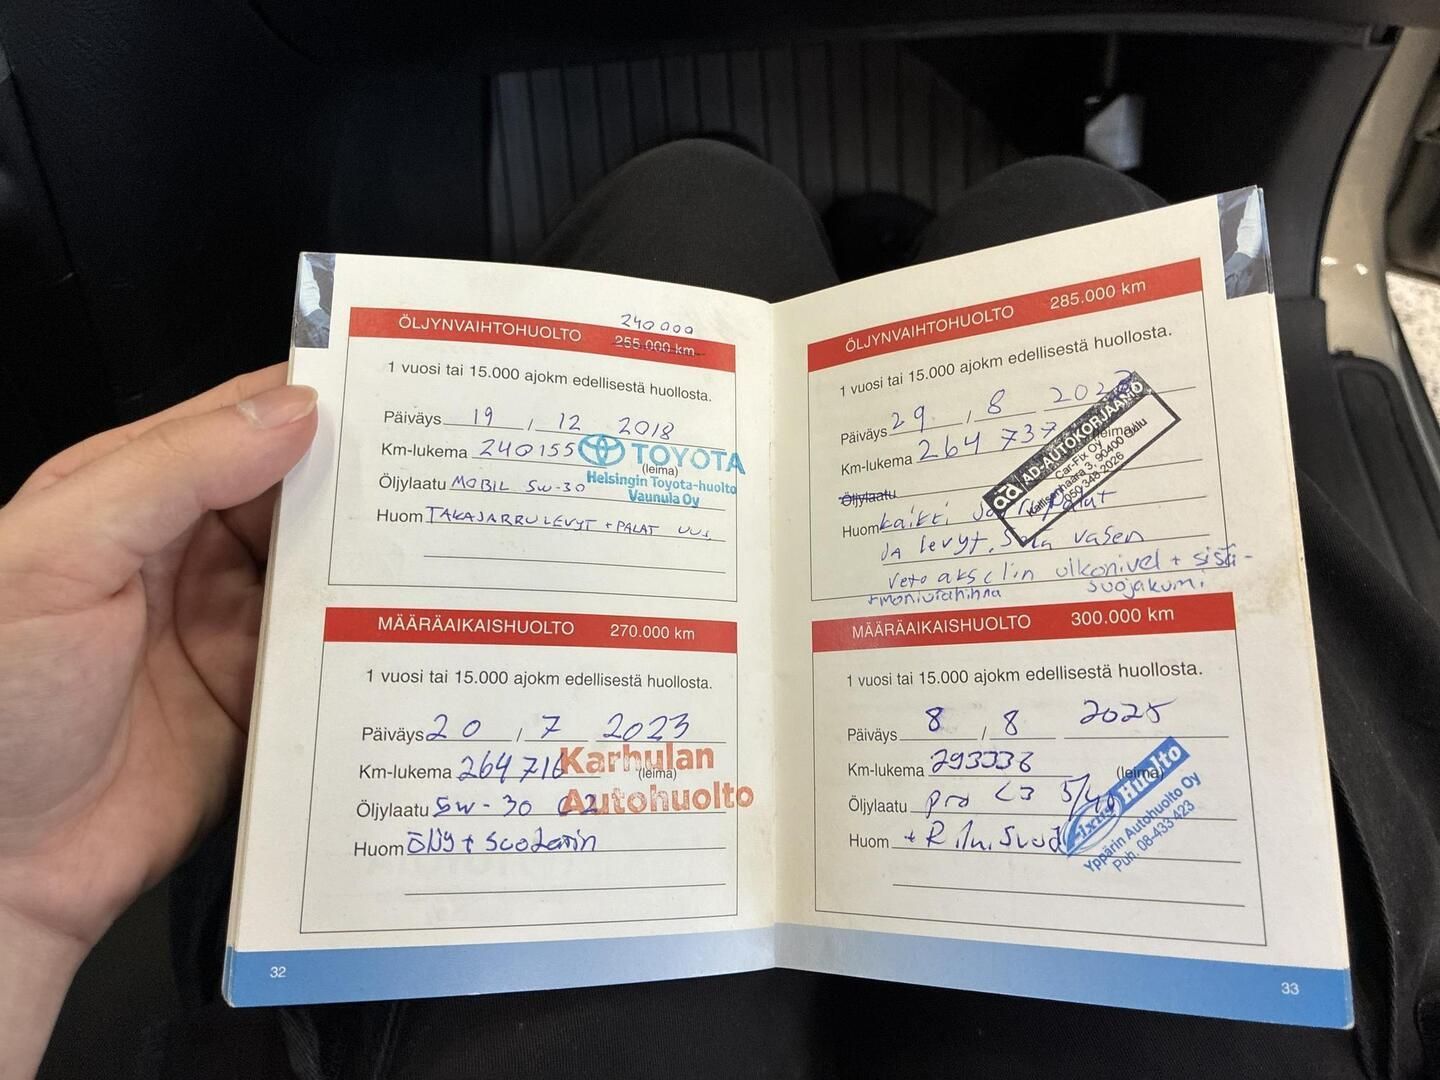 240000
ÖLJYNVAIHTOHUOLTO 255.000 km
1 vuosi tai 15.000 ajokm edellisestä huollosta.
Päiväys 19 / 12 2018
Km-lukema 240155
(leima)
TOYOTA
Helsingin Toyota-huolto
Vaunula Oy
Öljylaatu MOBIL 5W-30
Huom TAKAJARRULEVYT + PALAT UUS.
MÄÄRÄAIKAISHUOLTO 270.000 km
1 vuosi tai 15.000 ajokm edellisestä huollosta.
Päiväys 20 / 7 2023
Km-lukema 264716
(leima)
Karhulan
Autohuolto
Öljylaatu 5W-30 C2
Huom Öljy + suodatin
32
ÖLJYNVAIHTOHUOLTO 285.000 km
1 vuosi tai 15.000 ajokm edellisestä huollosta.
Päiväys 29 / 8 2023
Km-lukema 264737
(leima)
ad AD-AUTOKORJAAMO
Car-Fix Oy
Kallisenhaara 3, 90400 Oulu
050 348 2026
Öljylaatu
Huom kaikki
ja levyt. vasen
veto akselin ulkonivel + sisä-
suojakumi
+ moniurahihna
MÄÄRÄAIKAISHUOLTO 300.000 km
1 vuosi tai 15.000 ajokm edellisestä huollosta.
Päiväys 8 / 8 2025
Km-lukema 293336
(leima)
Huolto
Ypparin Autohuolto Oy
Puh. 08-433 423
Öljylaatu pro C3 5/40
Huom + R.ilm.suod
33